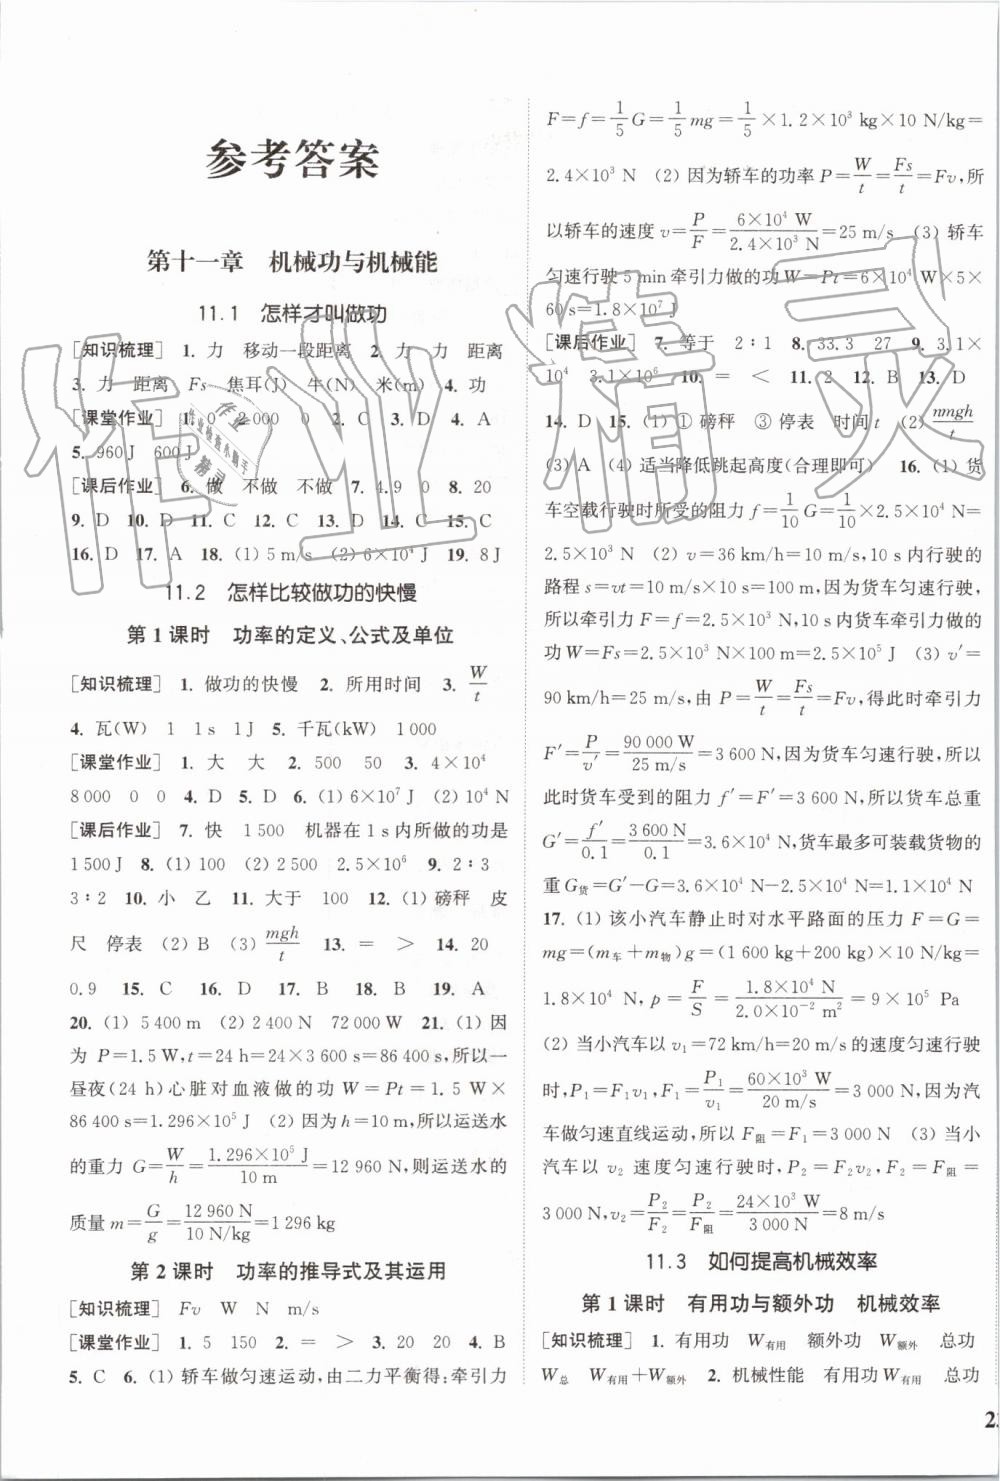 参考答案
第十一章 机械功与机械能
11.1 怎样才叫做功
[知识梳理] 1. 力 移动一段距离 2. 力 力 距离
3. 力 距离 Fs 焦耳(J) 牛(N) 米(m) 4. 功
[课堂作业] 1. 0 2 000 0 2. C 3. D 4. A
5. 960 J 600 J
[课后作业] 6. 做 不做 不做 7. 4.9 0 8. 20
9. D 10. D 11. C 12. C 13. D 14. C 15. C
16. D 17. A 18. (1) 5 m/s (2) 6×10⁴ J 19. 8 J
11.2 怎样比较做功的快慢
第 1 课时 功率的定义、公式及单位
[知识梳理] 1. 做功的快慢 2. 所用时间 3. W/t
4. 瓦(W) 1 1 s 1 J 5. 千瓦(kW) 1 000
[课堂作业] 1. 大 大 2. 500 50 3. 4×10⁴
8 000 0 0 4. D 5. D 6. (1) 6×10⁷ J (2) 10⁴ N
[课后作业] 7. 快 1 500 机器在 1 s 内所做的功是
1 500 J 8. (1) 100 (2) 2 500 2.5×10⁶ 9. 2∶3
3∶2 10. 小 乙 11. 大于 100 12. (1) 磅秤 皮
尺 停表 (2) B (3) mgh/t 13. = > 14. 20
0.9 15. C 16. D 17. B 18. B 19. A
20. (1) 5 400 m (2) 2 400 N 72 000 W 21. (1) 因
为 P=1.5 W,t=24 h=24×3 600 s=86 400 s,所以一
昼夜(24 h)心脏对血液做的功 W=Pt=1.5 W×
86 400 s=1.296×10⁵ J (2) 因为 h=10 m,所以运送水
的重力 G=W/h=1.296×10⁵ J/10 m=12 960 N,则运送水的
质量 m=G/g=12 960 N/10 N/kg=1 296 kg
第 2 课时 功率的推导式及其运用
[知识梳理] Fv W N m/s
[课堂作业] 1. 5 150 2. = > 3. 20 20 4. B
5. C 6. (1) 轿车做匀速运动,由二力平衡得:牵引力
F=f=1/5G=1/5mg=1/5×1.2×10³ kg×10 N/kg=
2.4×10³ N (2) 因为轿车的功率 P=W/t=Fs/t=Fv,所
以轿车的速度 v=P/F=6×10⁴ W/2.4×10³ N=25 m/s (3) 轿车
匀速行驶 5 min 牵引力做的功 W=Pt=6×10⁴ W×5×
60 s=1.8×10⁷ J
[课后作业] 7. 等于 2∶1 8. 33.3 27 9. 3.1×
10⁴ 3.1×10⁶ 10. = < 11. 2 12. B 13. D
14. D 15. (1) ① 磅秤 ③ 停表 时间 t (2) nmgh/t
(3) A (4) 适当降低跳起高度(合理即可) 16. (1) 货
车空载行驶时所受的阻力 f=1/10G=1/10×2.5×10⁴ N=
2.5×10³ N (2) v=36 km/h=10 m/s,10 s 内行驶的
路程 s=vt=10 m/s×10 s=100 m,因为货车匀速行驶,
所以牵引力 F=f=2.5×10³ N,10 s 内货车牵引力做的
功 W=Fs=2.5×10³ N×100 m=2.5×10⁵ J (3) v′=
90 km/h=25 m/s,由 P=W/t=Fs/t=Fv,得此时牵引力
F′=P/v′=90 000 W/25 m/s=3 600 N,因为货车匀速行驶,所以
此时货车受到的阻力 f′=F′=3 600 N,所以货车总重
G′=f′/0.1=3 600 N/0.1=3.6×10⁴ N,货车最多可装载货物的
重 G货=G′-G=3.6×10⁴ N-2.5×10⁴ N=1.1×10⁴ N
17. (1) 该小汽车静止时对水平路面的压力 F=G=
mg=(m车+m物)g=(1 600 kg+200 kg)×10 N/kg=
1.8×10⁴ N,p=F/S=1.8×10⁴ N/2.0×10⁻² m²=9×10⁵ Pa
(2) 当小汽车以 v₁=72 km/h=20 m/s 的速度匀速行驶
时,P₁=F₁v₁,F₁=P₁/v₁=60×10³ W/20 m/s=3 000 N,因为汽
车做匀速直线运动,所以 F阻=F₁=3 000 N (3) 当小
汽车以 v₂ 速度匀速行驶时,P₂=F₂v₂,F₂=F阻=
3 000 N,v₂=P₂/F₂=P₂/F阻=24×10³ W/3 000 N=8 m/s
11.3 如何提高机械效率
第 1 课时 有用功与额外功 机械效率
[知识梳理] 1. 有用功 W有用 额外功 W额外 总功
W总 W有用+W额外 2. 机械性能 有用功 W有用 总功
作业精灵